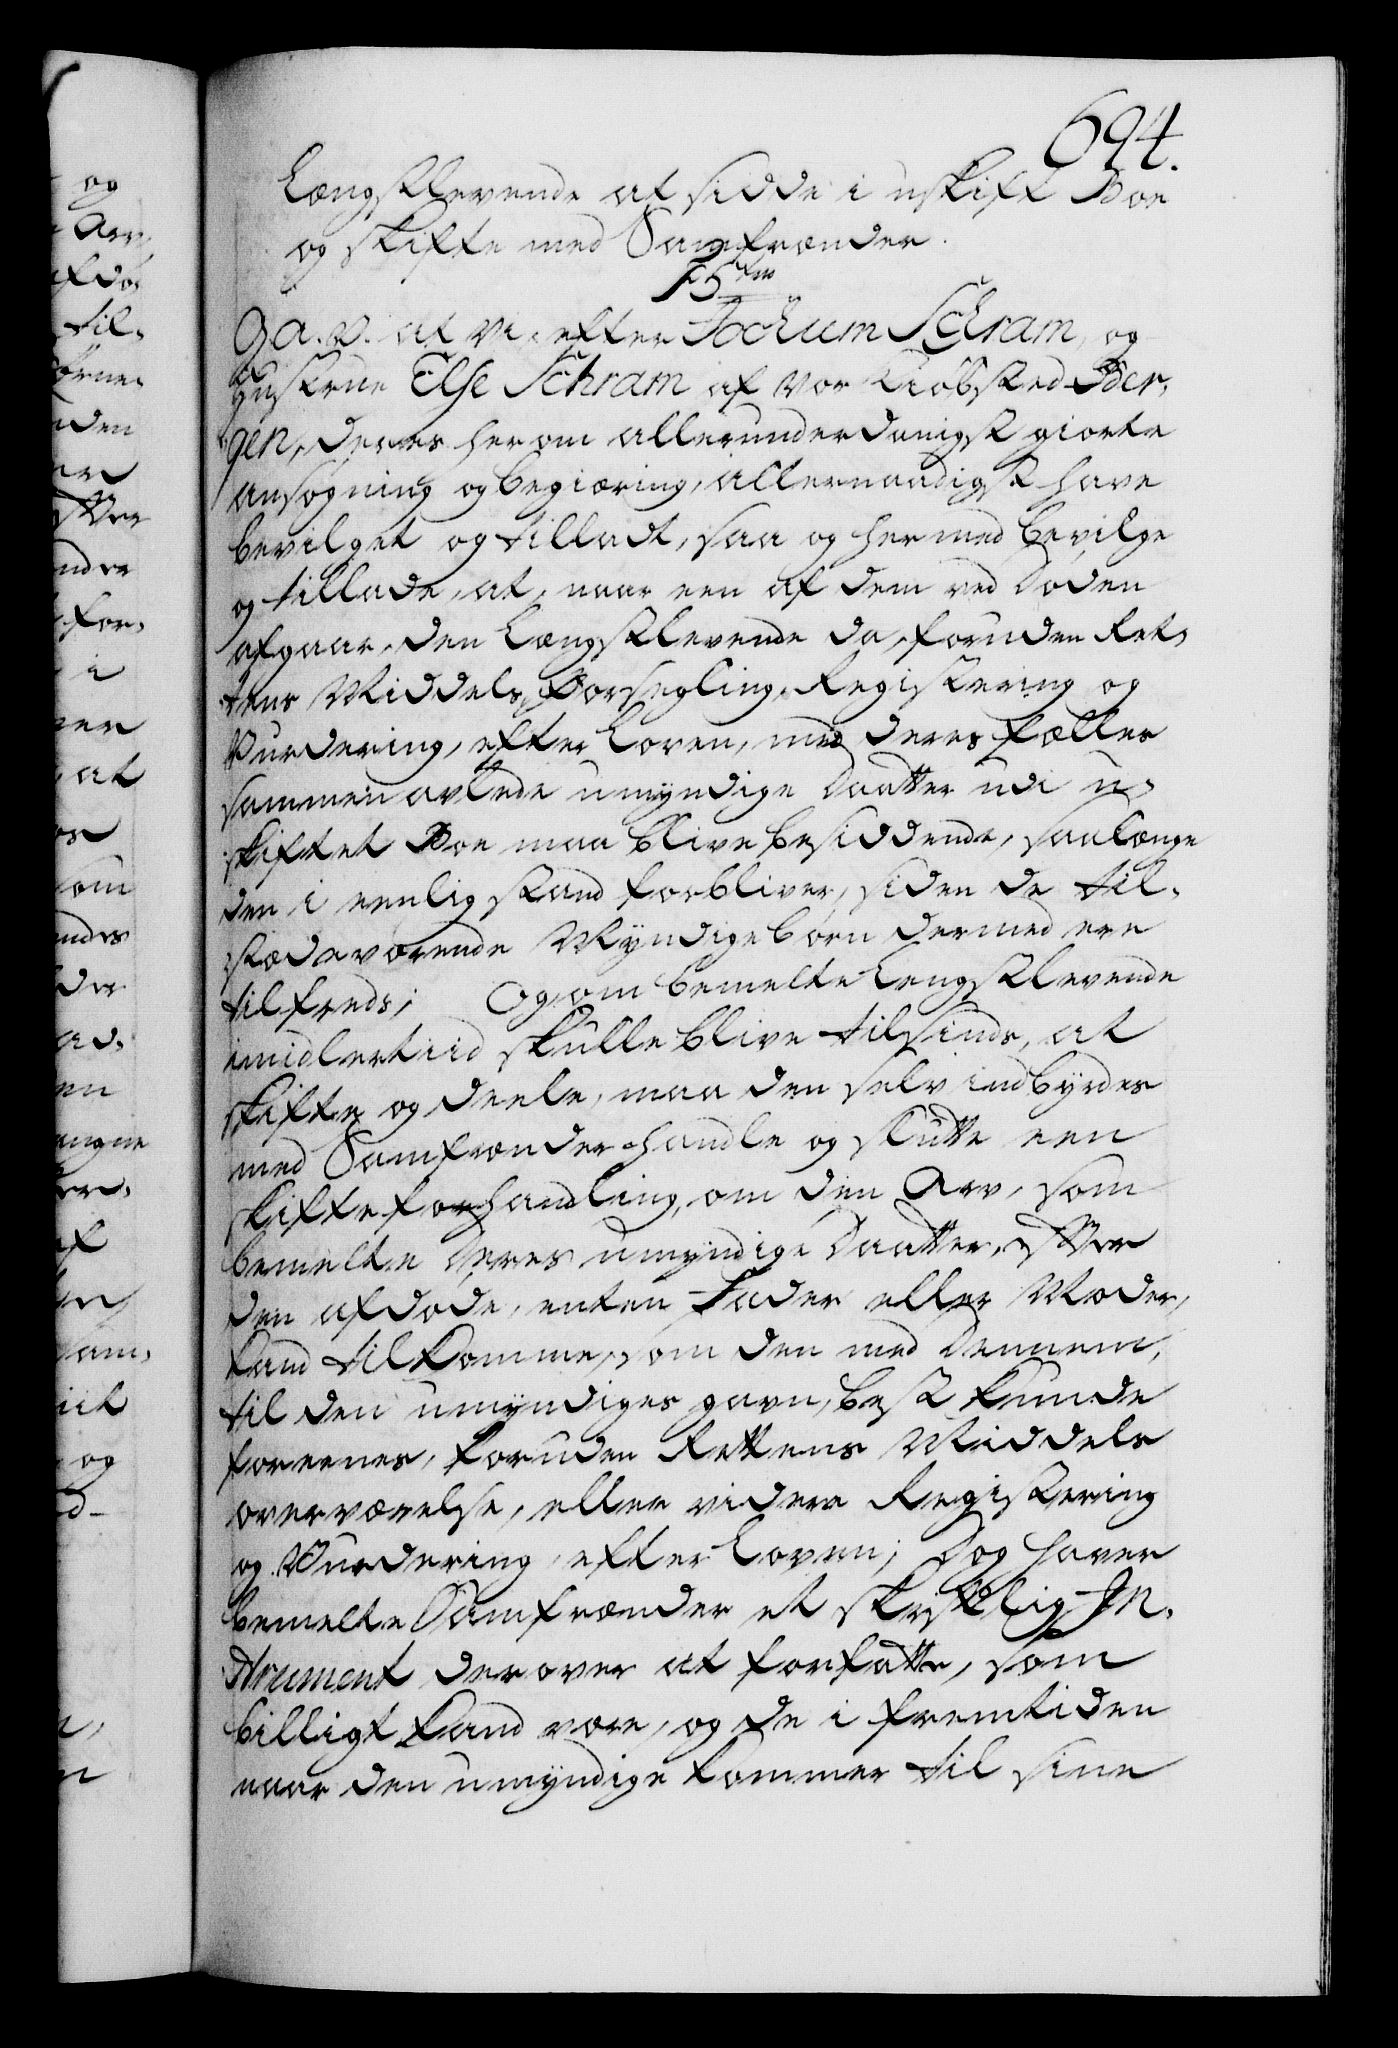 694.
Længstlevende at sidde i uskift Boe
og skifte med Samfrænder.
15de
G. a. v. at Vi, efter Jochum Schram, og
Hustrue Else Schram af vor Kiøbsted Ber,
gen, deres herom allerunderdanigst giorte
ansøgning og begiæring, allernaadigst have
bevilget og tilladt, saa og hermed bevilge
og tillade, at, naar een af dem ved Døden
afgaar, den Længstlevende da, foruden Ret,
tens Middels Forsegling, Registering og
Vurdering, efter Loven, med deres fælles
sammenavlede umyndige Daatter udi u,
skiftet Boe maa blive besiddende, saalænge
den i eenlig stand forbliver, siden de til,
stædeværende Myndige børn dermed ere
tilfreds; Og om bemelte Længstlevende
imidlertiid skulle blive tilsinds, at
skifte og deele, maa den selv indbyrdes
med Samfrænder handle og slutte een
skifteforhandling, om den Arv, som
bemelte deres umyndige Daatter, efter
den afdøde, enten Fader eller Moder,
kand tilkomme, som den med dennem,
til den umyndiges gavn, best kunde
foreenes, foruden Rettens Middels
overværelse, eller videre Registering
og Vurdering, efter Loven; Dog haver
bemelte Samfrænder et skriftlig In,
strument derover at forfatte, som
billigt kand være, og de i fremtiden
naar den umyndige kommer til sine
og
Arv,
afdø,
til,
uden
for,
i
at
som
en
af
Sam,
og